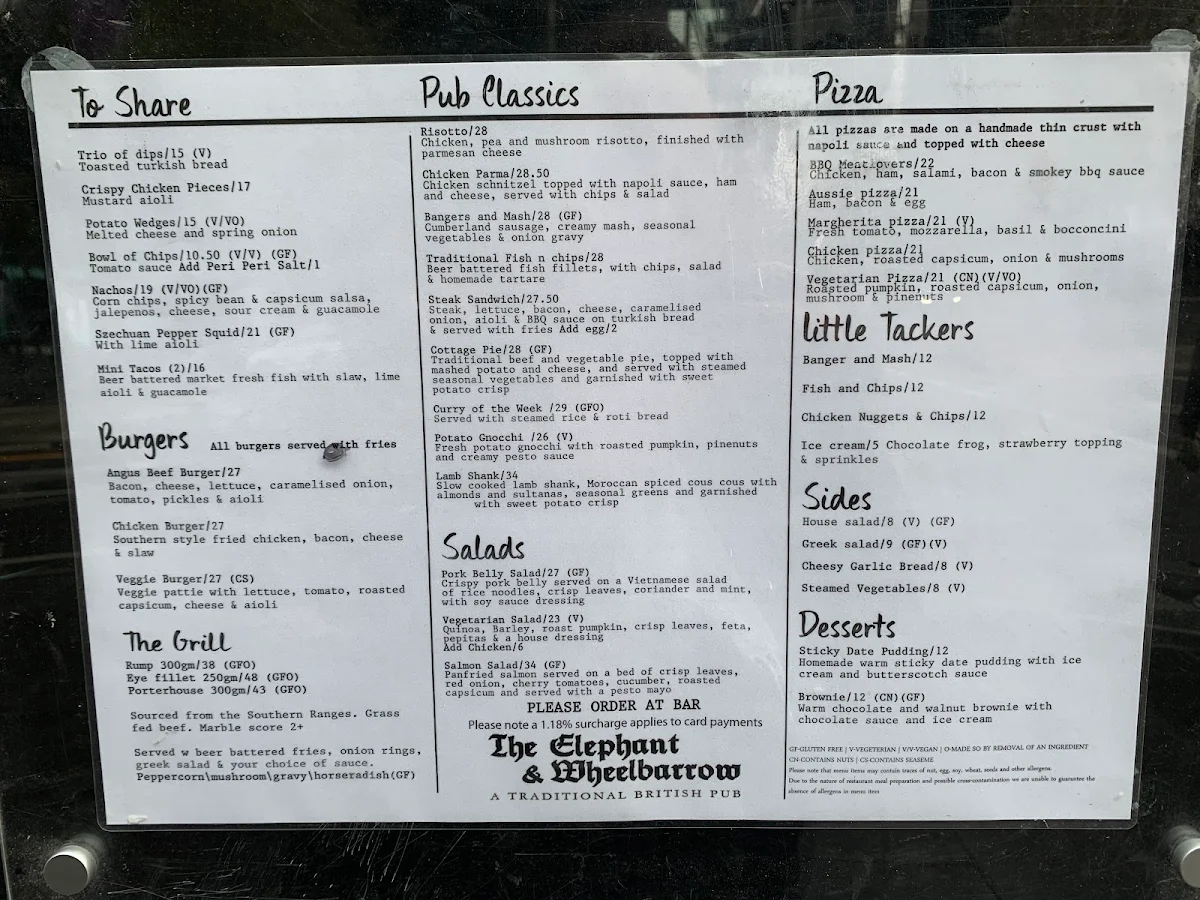 To Share
Trio of dips/15 (V)
Toasted turkish bread
Crispy Chicken Pieces/17
Mustard aioli
Potato Wedges/15 (V/VO)
Melted cheese and spring onion
Bowl of Chips/10.50 (V/V) (GF)
Tomato sauce Add Peri Peri Salt/1
Nachos/19 (V/VO)(GF)
Corn chips, spicy bean & capsicum salsa,
jalepenos, cheese, sour cream & guacamole
Szechuan Pepper Squid/21 (GF)
With lime aioli
Mini Tacos (2)/16
Beer battered market fresh fish with slaw, lime
aioli & guacamole
Burgers All burgers served with fries
Angus Beef Burger/27
Bacon, cheese, lettuce, caramelised onion,
tomato, pickles & aioli
Chicken Burger/27
Southern style fried chicken, bacon, cheese
& slaw
Veggie Burger/27 (CS)
Veggie pattie with lettuce, tomato, roasted
capsicum, cheese & aioli
The Grill
Rump 300gm/38 (GFO)
Eye fillet 250gm/48 (GFO)
Porterhouse 300gm/43 (GFO)
Sourced from the Southern Ranges. Grass
fed beef. Marble score 2+
Served w beer battered fries, onion rings,
greek salad & your choice of sauce.
Peppercorn\mushroom\gravy\horseradish(GF)
Pub Classics
Risotto/28
Chicken, pea and mushroom risotto, finished with
parmesan cheese
Chicken Parma/28.50
Chicken schnitzel topped with napoli sauce, ham
and cheese, served with chips & salad
Bangers and Mash/28 (GF)
Cumberland sausage, creamy mash, seasonal
vegetables & onion gravy
Traditional Fish n chips/28
Beer battered fish fillets, with chips, salad
& homemade tartare
Steak Sandwich/27.50
Steak, lettuce, bacon, cheese, caramelised
onion, aioli & BBQ sauce on turkish bread
& served with fries Add egg/2
Cottage Pie/28 (GF)
Traditional beef and vegetable pie, topped with
mashed potato and cheese, and served with steamed
seasonal vegetables and garnished with sweet
potato crisp
Curry of the Week /29 (GFO)
Served with steamed rice & roti bread
Potato Gnocchi /26 (V)
Fresh potato gnocchi with roasted pumpkin, pinenuts
and creamy pesto sauce
Lamb Shank/34
Slow cooked lamb shank, Moroccan spiced cous cous with
almonds and sultanas, seasonal greens and garnished
with sweet potato crisp
Salads
Pork Belly Salad/27 (GF)
Crispy pork belly served on a Vietnamese salad
of rice noodles, crisp leaves, coriander and mint,
with soy sauce dressing
Vegetarian Salad/23 (V)
Quinoa, Barley, roast pumpkin, crisp leaves, feta,
pepitas & a house dressing
Add Chicken/6
Salmon Salad/34 (GF)
Panfried salmon served on a bed of crisp leaves,
red onion, cherry tomatoes, cucumber, roasted
capsicum and served with a pesto mayo
PLEASE ORDER AT BAR
Please note a 1.18% surcharge applies to card payments
The Elephant
& Wheelbarrow
A TRADITIONAL BRITISH PUB
Pizza
All pizzas are made on a handmade thin crust with
napoli sauce and topped with cheese
BBQ Meatlovers/22
Chicken, ham, salami, bacon & smokey bbq sauce
Aussie pizza/21
Ham, bacon & egg
Margherita pizza/21 (V)
Fresh tomato, mozzarella, basil & bocconcini
Chicken pizza/21
Chicken, roasted capsicum, onion & mushrooms
Vegetarian Pizza/21 (CN)(V/VO)
Roasted pumpkin, roasted capsicum, onion,
mushroom & pinenuts
little Tackers
Banger and Mash/12
Fish and Chips/12
Chicken Nuggets & Chips/12
Ice cream/5 Chocolate frog, strawberry topping
& sprinkles
Sides
House salad/8 (V) (GF)
Greek salad/9 (GF)(V)
Cheesy Garlic Bread/8 (V)
Steamed Vegetables/8 (V)
Desserts
Sticky Date Pudding/12
Homemade warm sticky date pudding with ice
cream and butterscotch sauce
Brownie/12 (CN)(GF)
Warm chocolate and walnut brownie with
chocolate sauce and ice cream
GF-GLUTEN FREE | V-VEGETERIAN | V/V-VEGAN | O-MADE SO BY REMOVAL OF AN INGREDIENT
CN-CONTAINS NUTS | CS-CONTAINS SEASEME
Please note that menu items may contain traces of nut, egg, soy, wheat, seeds and other allergens.
Due to the nature of restaurant meal preparation and possible cross-contamination we are unable to guarantee the
absence of allergens in menu item